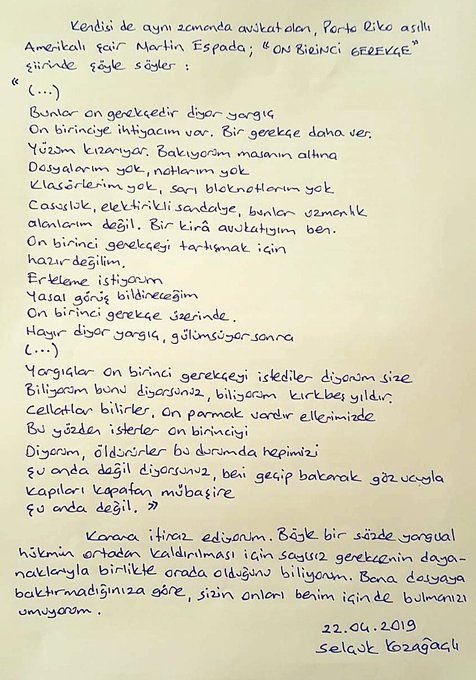 Kendisi de aynı zamanda avukat olan, Porto Riko asıllı
Amerikalı şair Martin Espada; "ON BİRİNCİ GEREKÇE"
şiirinde şöyle söyler :
"
(...)
Bunlar on gerekçedir diyor yargıç
On birinciye ihtiyacım var. Bir gerekçe daha ver.
Yüzüm kızarıyor. Bakıyorum masanın altına
Dosyalarım yok, notlarım yok
Klasörlerim yok, sarı bloknotlarım yok
Casusluk, elektirikli sandalye, bunlar uzmanlık
alanlarım değil. Bir kirâ avukatıyım ben.
On birinci gerekçeyi tartışmak için
hazır değilim.
Erteleme istiyorum
Yasal görüş bildireceğim
On birinci gerekçe üzerinde.
Hayır diyor yargıç, gülümsüyor sonra
(...)
Yargıçlar on birinci gerekçeyi istediler diyorum size
Biliyorum bunu diyorsunuz, biliyorum kırkbeş yıldır.
Cellatlar bilirler, on parmak vardır ellerimizde
Bu yüzden isterler on birinciyi
Diyorum, öldürürler bu durumda hepimizi
Şu anda değil diyorsunuz, beni geçip bakarak göz ucuyla
Kapıları kapatan mübaşire
Şu anda değil. »
Karara itiraz ediyorum. Böyle bir sözde yargısal
hükmün ortadan kaldırılması için sayısız gerekçenin daya-
naklarıyla birlikte orada olduğunu biliyorum. Bana dosyaya
baktırmadığınıza göre, sizin onları benim için de bulmanızı
umuyorum.
22.04.2019
Selçuk Kozağaçlı